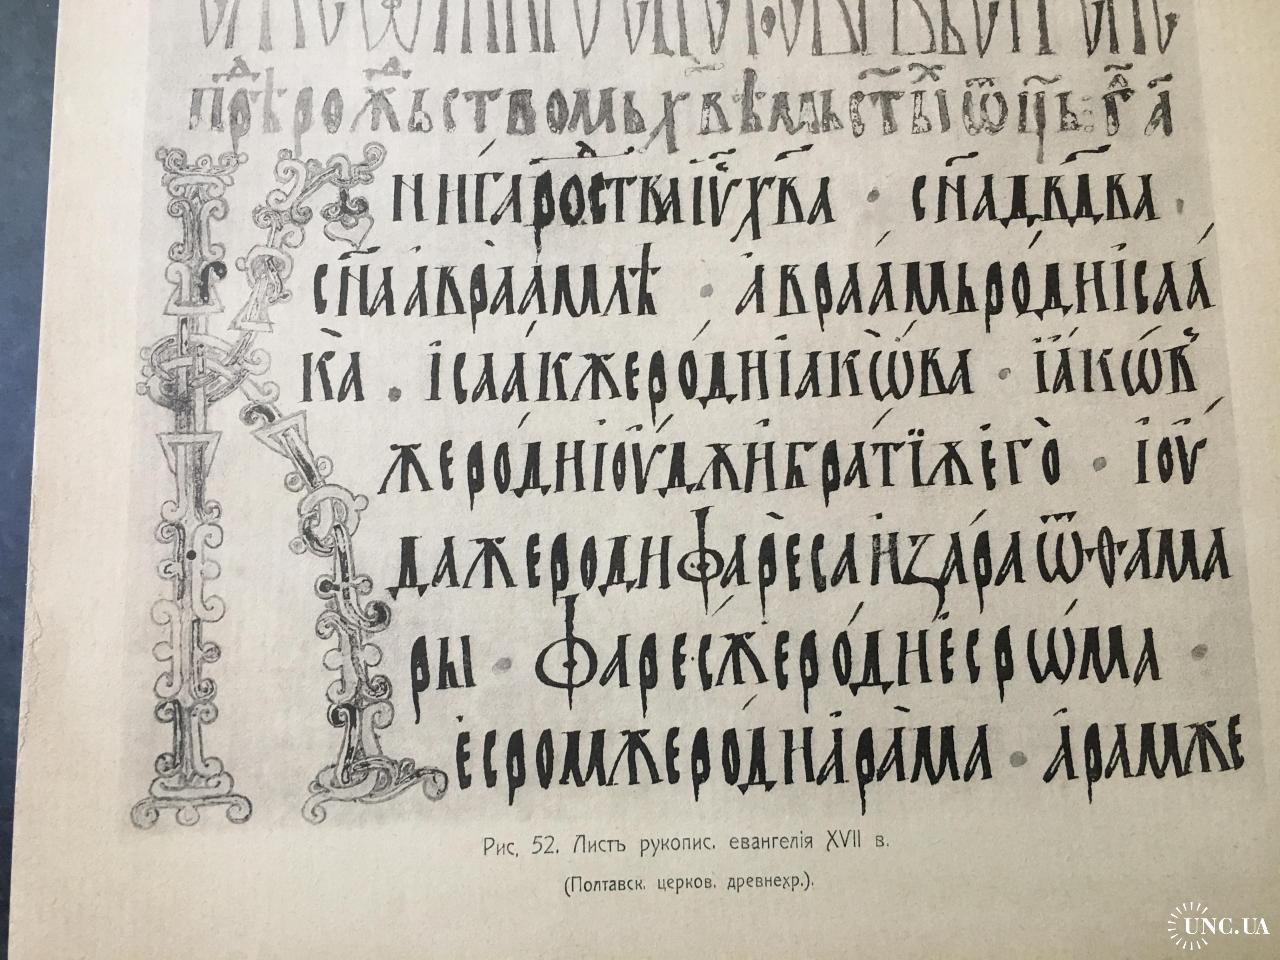 пре рожьствомь хвѣмь сты ѿць гл а
Книга рⷣоства іѵ҃ хв҃а · сн҃а дв҃два ·
сн҃а авраамлѣ · авраамь роди ісаа
ка · ісаак же роди іакѡва · їакѡв
же роди іоуду и братїѧ его · іоу
да же роди фареса и зара ѿ ѳама
ры · фарес же роди есрѡма ·
есром же роди арама · арам же
Рис. 52. Листъ рукопис. евангелія XVII в.
(Полтавск. церков. древнехр.).
UNC.UA